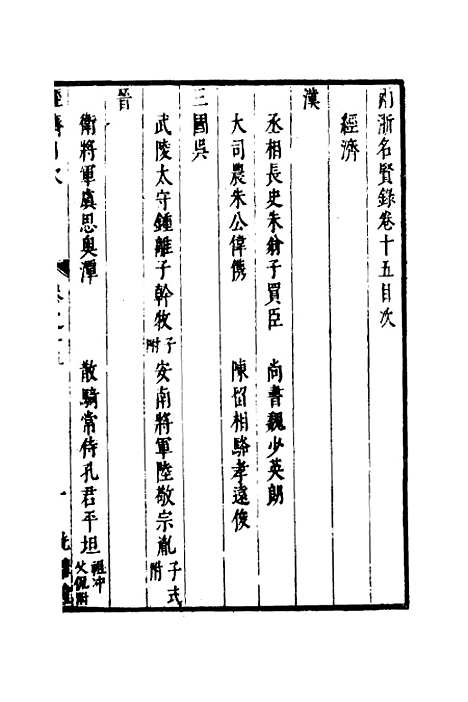 兩浙名賢錄卷十五目次
經濟
漢
丞相長史朱翁子買臣　尚書魏少英朗
大司農朱公偉儁　陳留相駱孝遠俊
三國吳
武陵太守鍾離子幹牧子附　安南將軍陸敬宗胤子式附
晉
衛將軍虞思奧潭　散騎常侍孔君平坦祖冲父侃附
經濟目次　卷之十五　一